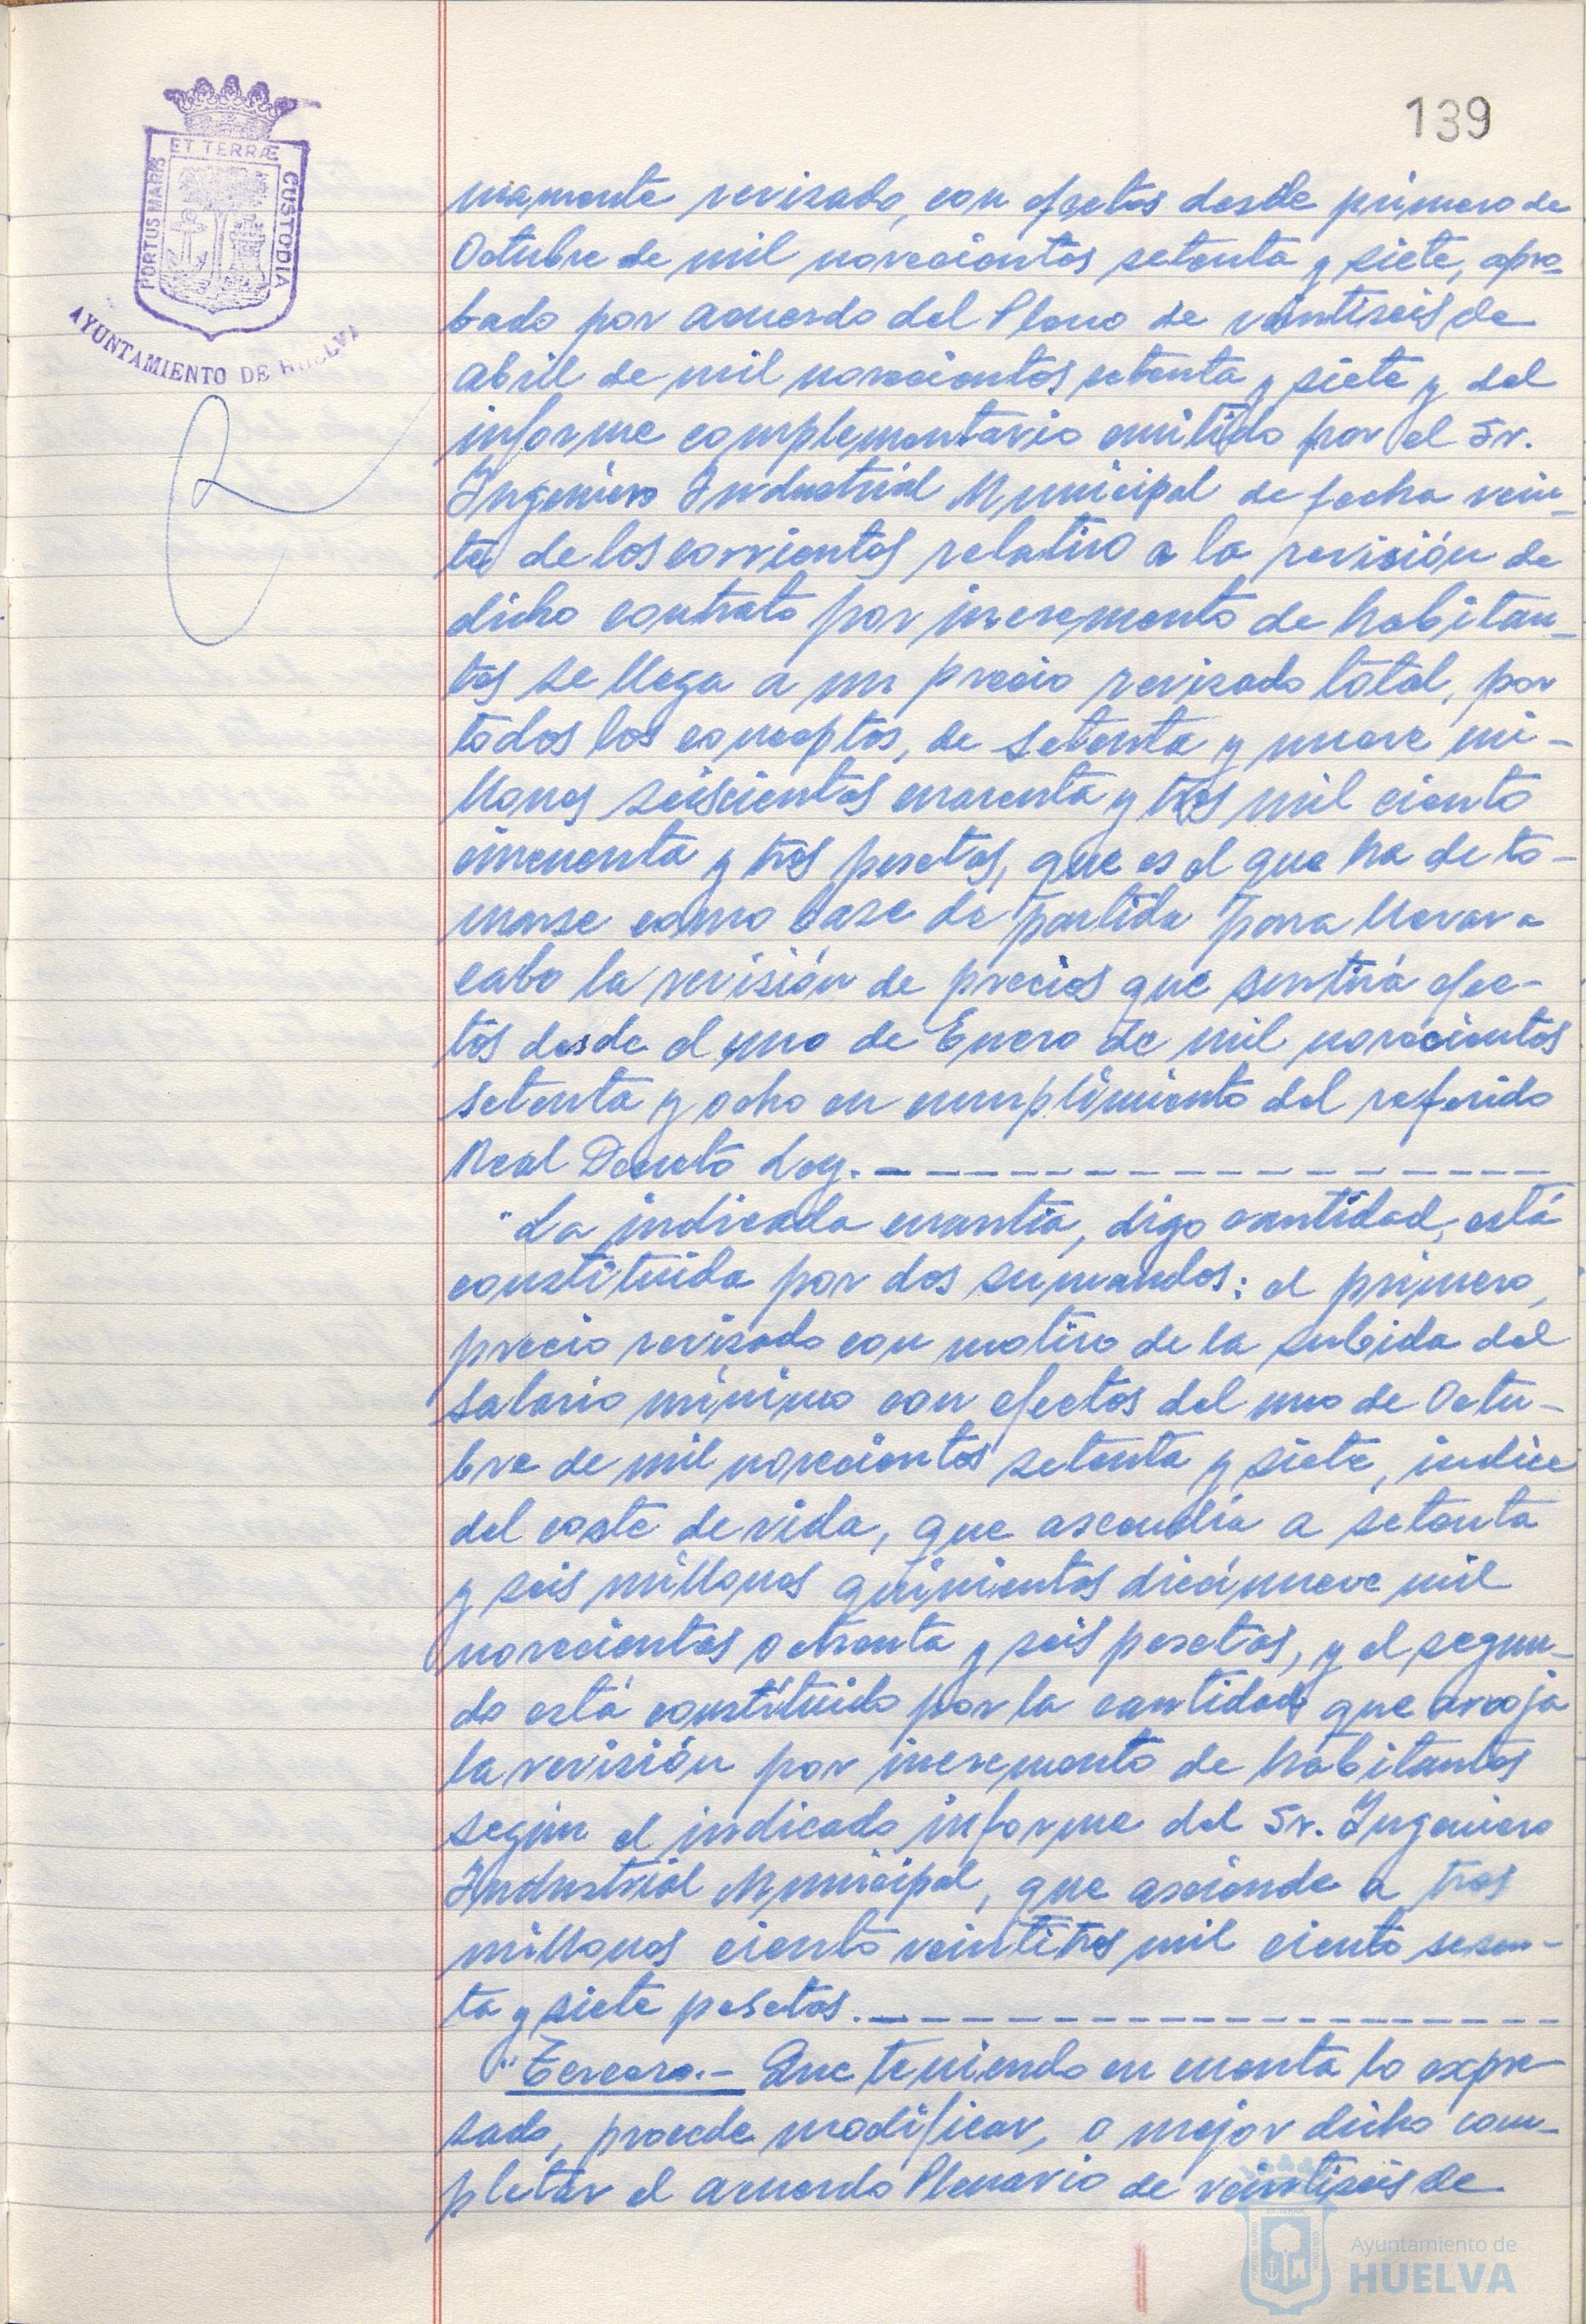 139
ET TERRÆ
PORTUS MARIS
CUSTODIA
AYUNTAMIENTO DE HUELVA
mamente revisado, con efectos desde primero de
Octubre de mil novecientos setenta y siete, apro-
bado por acuerdo del Pleno de veintiseis de
abril de mil novecientos setenta y siete y del
informe complementario emitido por el Sr.
Ingeniero Industrial Municipal de fecha vein-
te de los corrientes relativo a la revisión de
dicho contrato por incremento de habitan-
tes se llega a un precio revisado total, por
todos los conceptos, de setenta y nueve mi-
llones seiscientos cuarenta y tres mil ciento
cincuenta y tres pesetas, que es el que ha de to-
marse como base de partida para llevar a
cabo la revisión de precios que sentirá efec-
tos desde el uno de Enero de mil novecientos
setenta y ocho en cumplimiento del referido
Real Decreto Ley.
"La indicada cuantía, digo cantidad, está
constituida por dos sumandos: el primero,
precio revisado con motivo de la subida del
salario mínimo con efectos del uno de Octu-
bre de mil novecientos setenta y siete, indice
del coste de vida, que ascendía a setenta
y seis millones quinientos diecinueve mil
novecientos ochenta y seis pesetas, y el segun-
do está constituido por la cantidad que arroja
la revisión por incremento de habitantes
según el indicado informe del Sr. Ingeniero
Industrial Municipal, que asciende a tres
millones ciento veintitres mil ciento sesen-
ta y siete pesetas.
"Tercero.- Que teniendo en cuenta lo expre-
sado, procede modificar, o mejor dicho com-
pletar el acuerdo Plenario de veintiseis de
Ayuntamiento de
HUELVA